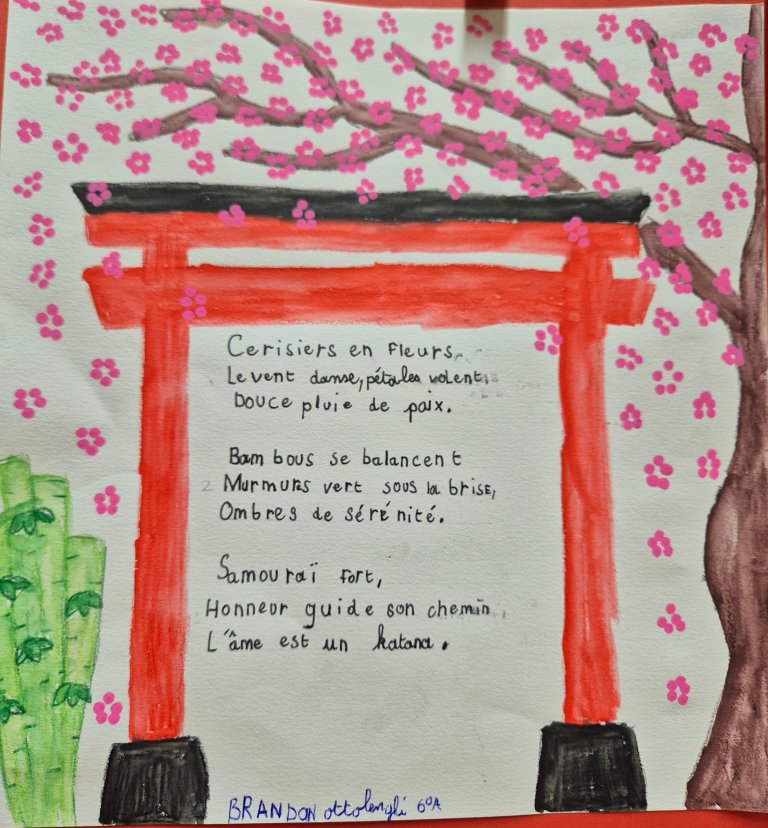 Cerisiers en Fleurs,
Le vent danse, pétales volent,
Douce pluie de paix.
Bambous se balancent
Murmurs vert sous la brise,
Ombres de sérénité.
Samouraï fort,
Honneur guide son chemin,
L'âme est un katana.
BRANDON ottolenghi 6°A